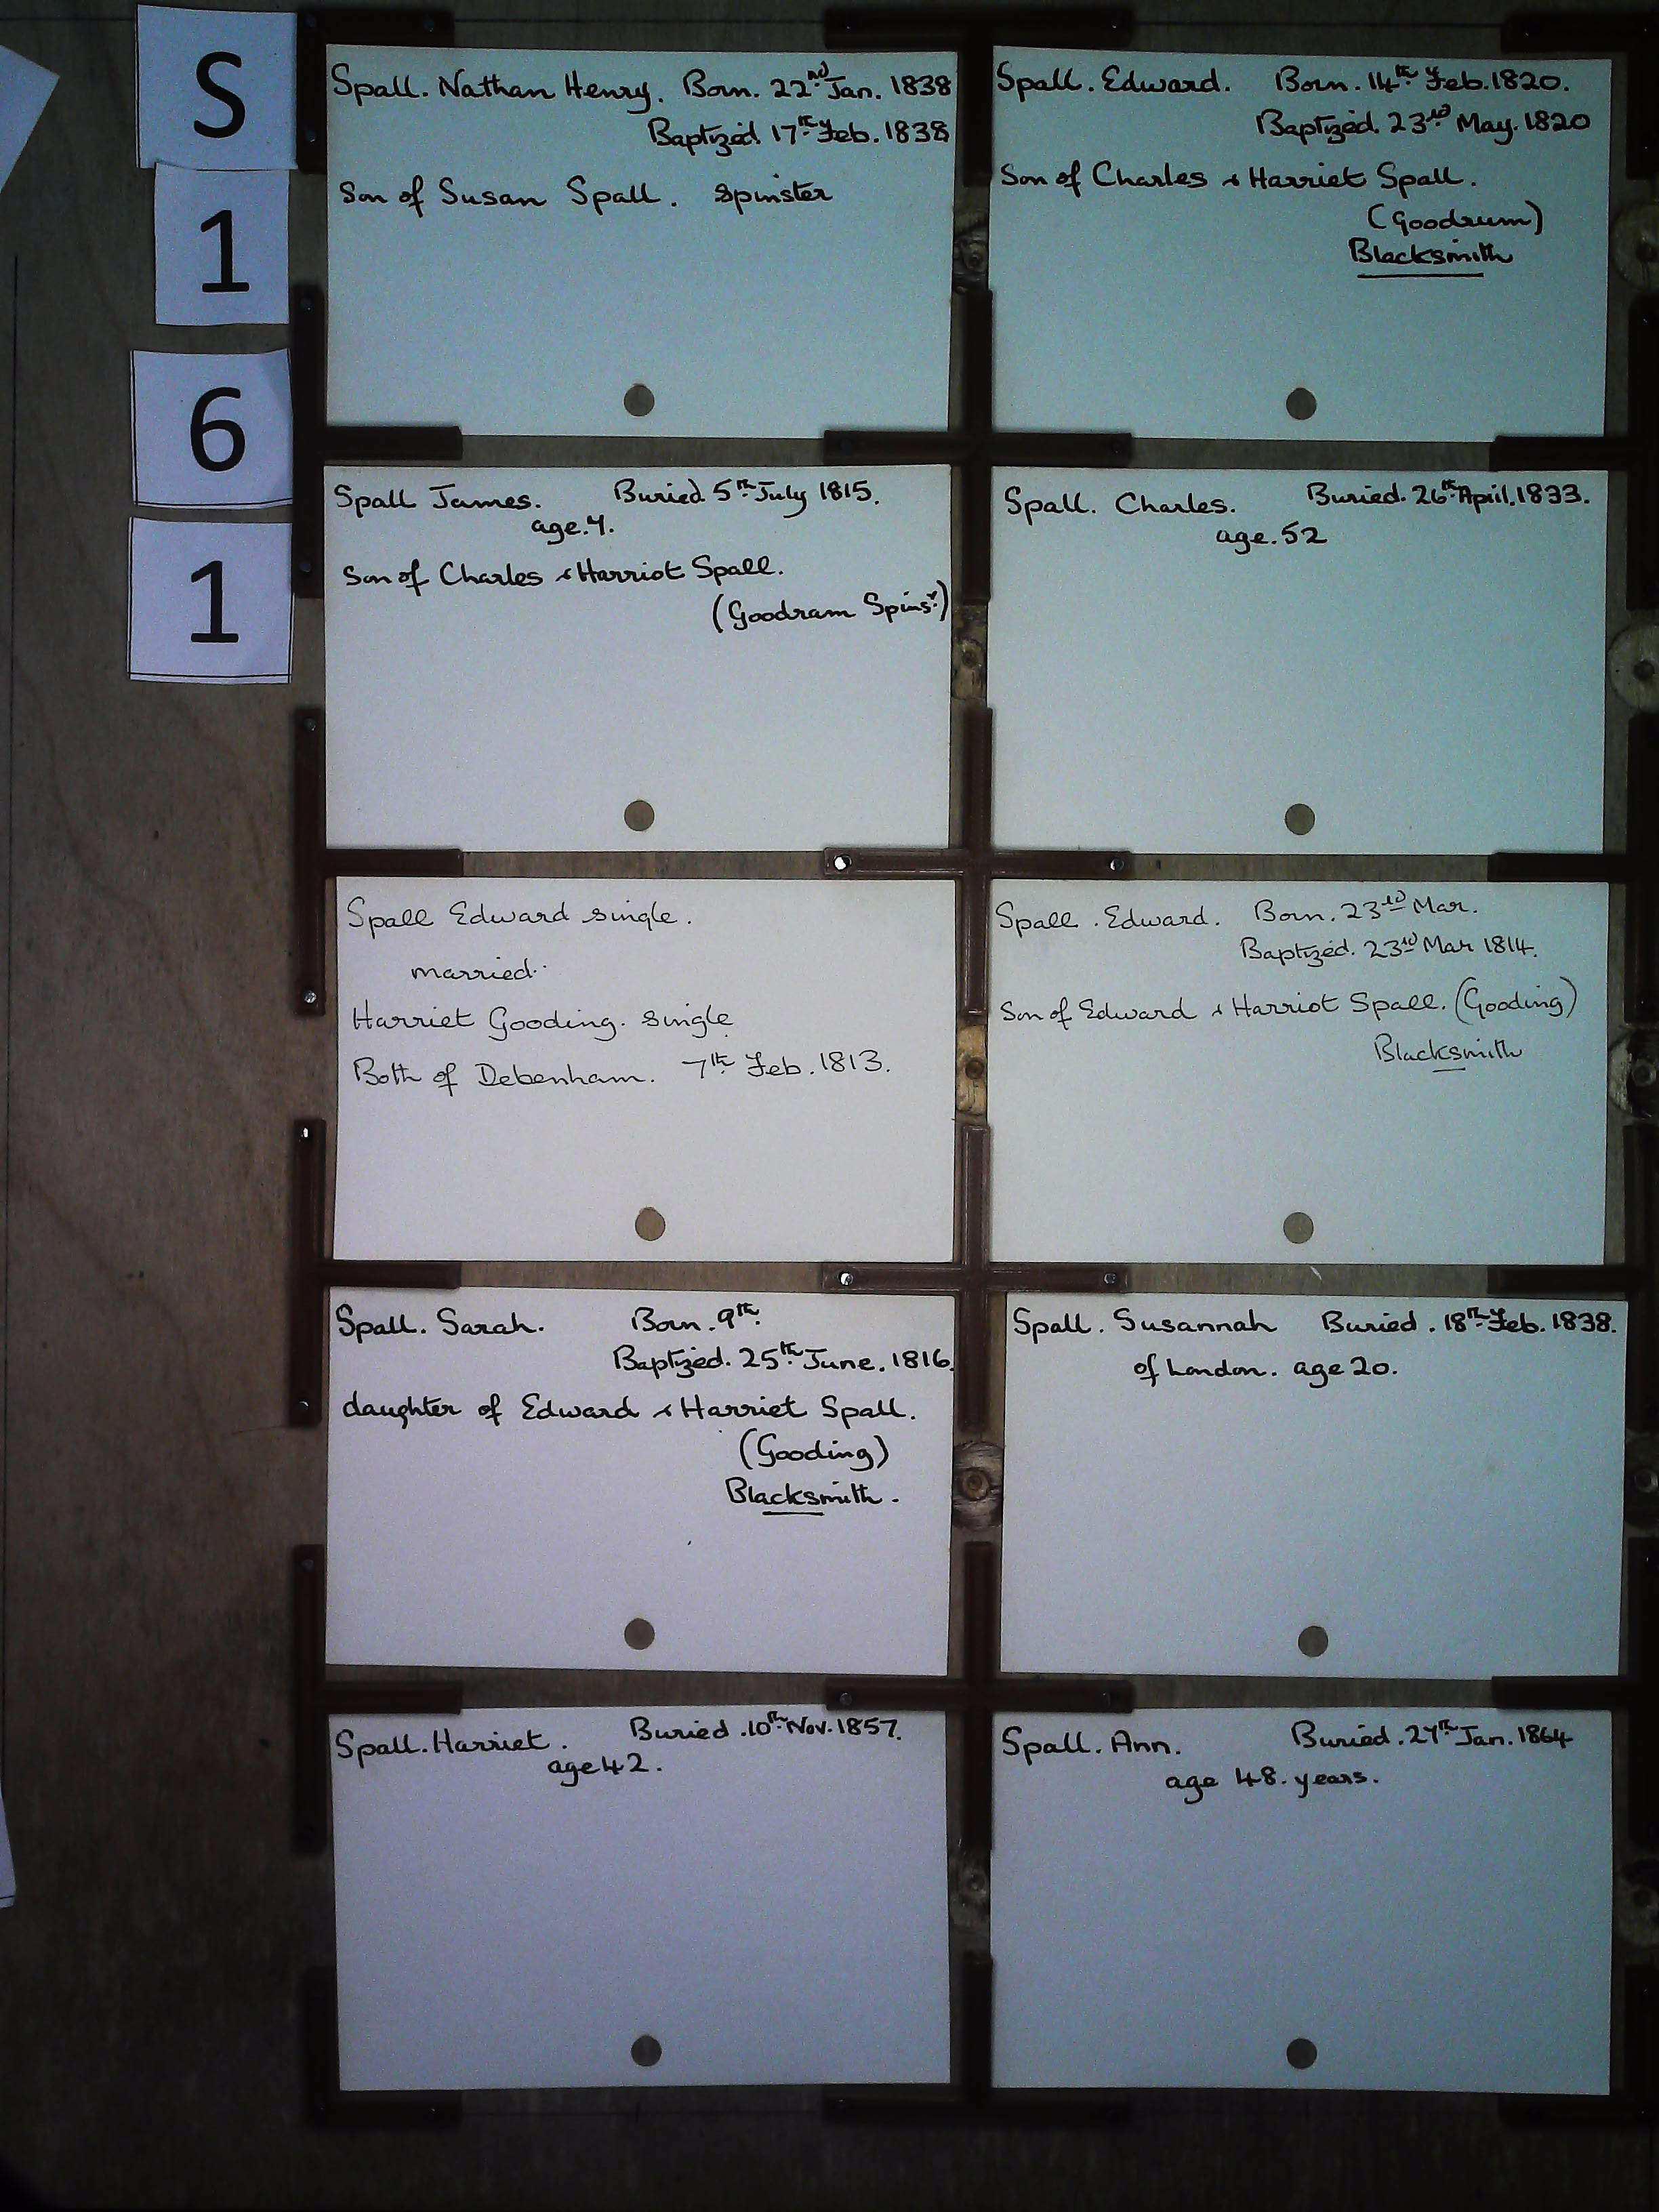 S
1
6
1
Spall. Nathan Henry. Born. 22nd Jan. 1838
Baptized 17th Feb. 1838
Son of Susan Spall. Spinster
Spall. Edward. Born. 14th Feb. 1820.
Baptized. 23rd May. 1820
Son of Charles & Harriet Spall.
(Goodrum)
Blacksmith
Spall James. Buried 5th July 1815.
age. 4.
Son of Charles & Harriot Spall.
(Goodram Spinsr.)
Spall. Charles. Buried. 26th April. 1833.
age. 52
Spall Edward single.
married.
Harriet Gooding. single
Both of Debenham. 7th Feb. 1813.
Spall. Edward. Born. 23rd Mar.
Baptized. 23rd Mar 1814.
Son of Edward & Harriot Spall. (Gooding)
Blacksmith
Spall. Sarah. Born. 9th
Baptized. 25th June. 1816.
daughter of Edward & Harriet Spall.
(Gooding)
Blacksmith.
Spall. Susannah Buried. 18th Feb. 1838.
of London. age 20.
Spall. Harriet. Buried. 10th Nov. 1857.
age 42.
Spall. Ann. Buried. 27th Jan. 1864
age 48. years.